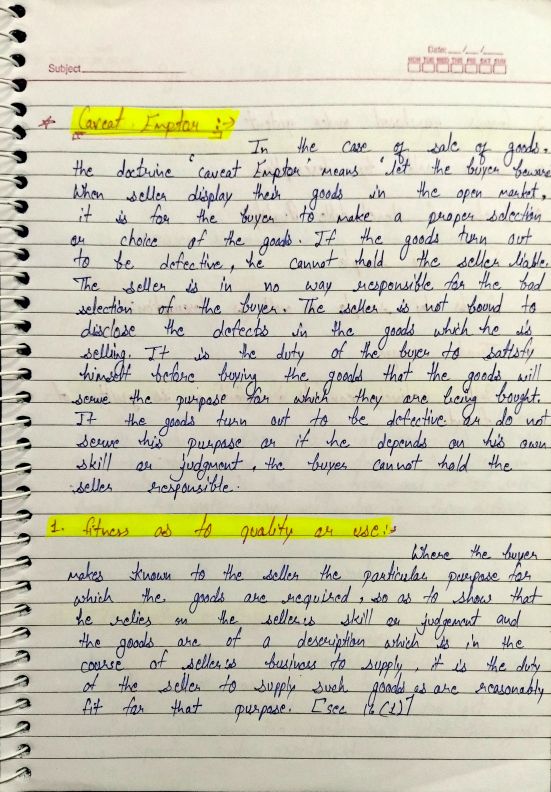 Date: __/__/__
MON TUE WED THU FRI SAT SUN
Subject
Caveat Emptor :→
In the case of sale of goods,
the doctrine 'caveat Emptor' means 'let the buyer beware
When seller display their goods in the open market,
it is for the buyer to make a proper selection
or choice of the goods. If the goods turn out
to be defective, he cannot hold the seller liable.
The seller is in no way responsible for the bad
selection of the buyer. The seller is not bound to
disclose the defects in the goods which he is
selling. It is the duty of the buyer to satisfy
himself before buying the goods that the goods will
serve the purpose for which they are being bought.
If the goods turn out to be defective or do not
serve his purpose or if he depends on his own
skill or judgment, the buyer cannot hold the
seller responsible.
1. fitness as to quality or use :→
Where the buyer
makes known to the seller the particular purpose for
which the goods are required, so as to show that
he relies on the seller's skill or judgement and
the goods are of a description which is in the
course of seller's business to supply, it is the duty
of the seller to supply such goods as are reasonably
fit for that purpose. [sec 16(1)]